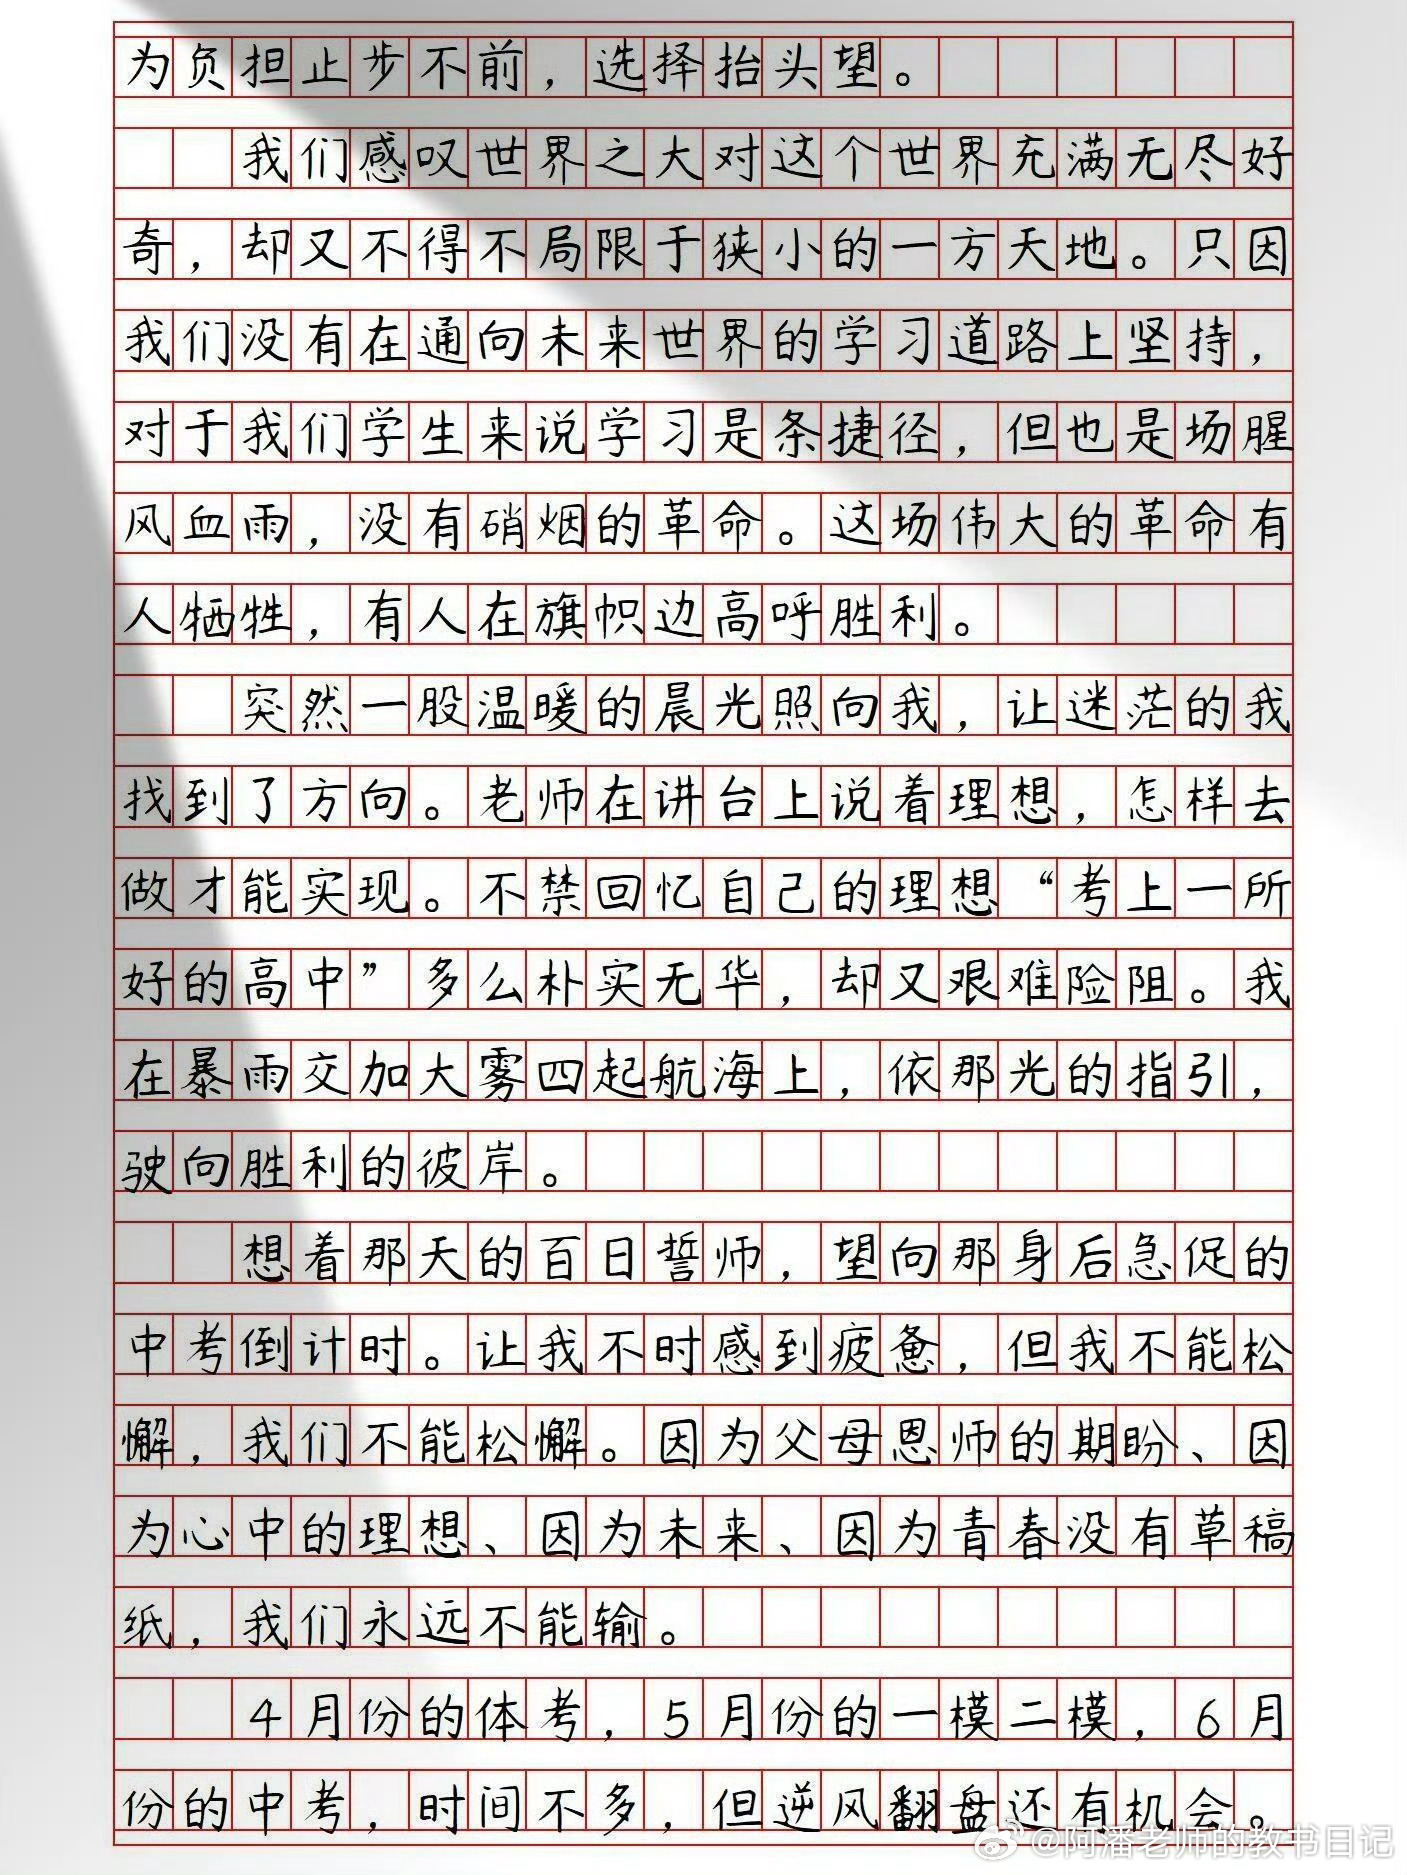 为负担止步不前，选择抬头望。
我们感叹世界之大对这个世界充满无尽好
奇，却又不得不局限于狭小的一方天地。只因
我们没有在通向未来世界的学习道路上坚持，
对于我们学生来说学习是条捷径，但也是场腥
风血雨，没有硝烟的革命。这场伟大的革命有
人牺牲，有人在旗帜边高呼胜利。
突然一股温暖的晨光照向我，让迷茫的我
找到了方向。老师在讲台上说着理想，怎样去
做才能实现。不禁回忆自己的理想“考上一所
好的高中”多么朴实无华，却又艰难险阻。我
在暴雨交加大雾四起航海上，依那光的指引，
驶向胜利的彼岸。
想着那天的百日誓师，望向那身后急促的
中考倒计时。让我不时感到疲惫，但我不能松
懈，我们不能松懈。因为父母恩师的期盼、因
为心中的理想、因为未来、因为青春没有草稿
纸，我们永远不能输。
4月份的体考，5月份的一模二模，6月
份的中考，时间不多，但逆风翻盘还有机会。
@阿潘老师的教书日记